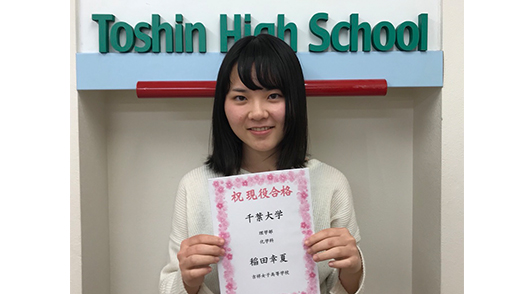 Toshin High School
祝 現役合格
千葉大学
理学部
化学科
稲田幸夏
吉祥女子高等学校